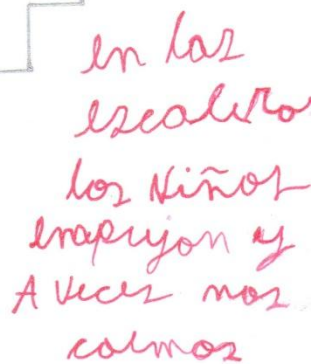 en las
escalero
los Niños
enapujon y
A veces nos
caimos